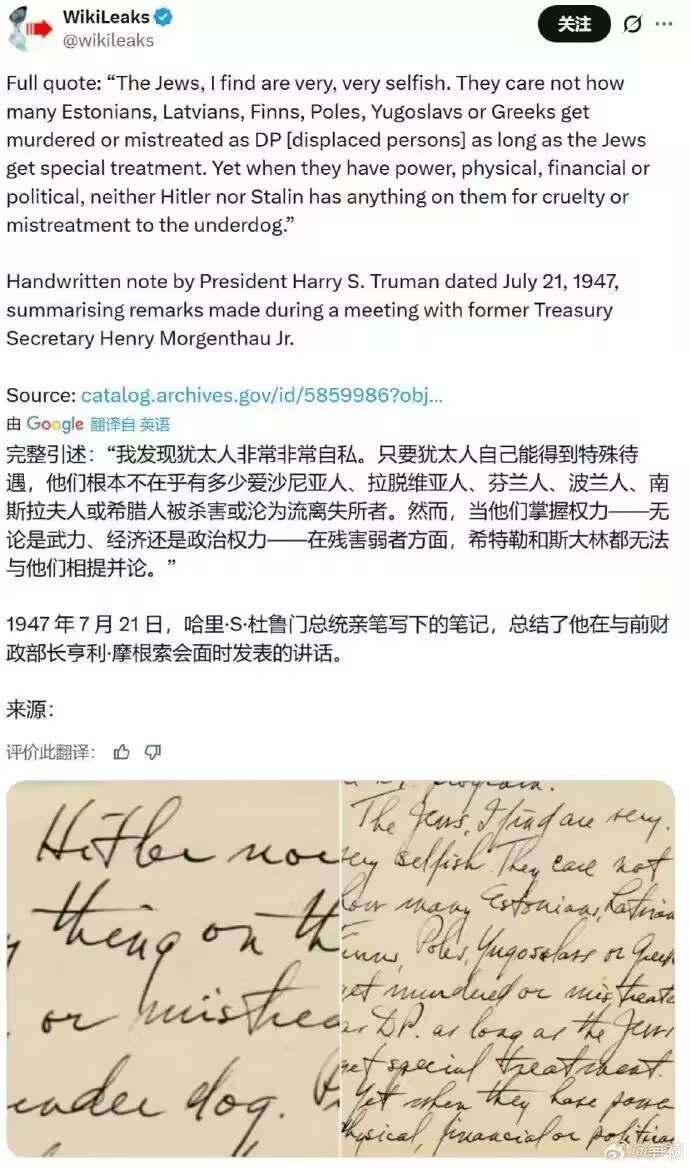 WikiLeaks
@wikileaks
关注
Full quote: “The Jews, I find are very, very selfish. They care not how
many Estonians, Latvians, Finns, Poles, Yugoslavs or Greeks get
murdered or mistreated as DP [displaced persons] as long as the Jews
get special treatment. Yet when they have power, physical, financial or
political, neither Hitler nor Stalin has anything on them for cruelty or
mistreatment to the underdog.”
Handwritten note by President Harry S. Truman dated July 21, 1947,
summarising remarks made during a meeting with former Treasury
Secretary Henry Morgenthau Jr.
Source: catalog.archives.gov/id/5859986?obj...
由 Google 翻译自 英语
完整引述：“我发现犹太人非常非常自私。只要犹太人自己能得到特殊待
遇，他们根本不在乎有多少爱沙尼亚人、拉脱维亚人、芬兰人、波兰人、南
斯拉夫人或希腊人被杀害或沦为流离失所者。然而，当他们掌握权力——无
论是武力、经济还是政治权力——在残害弱者方面，希特勒和斯大林都无法
与他们相提并论。”
1947 年 7 月 21 日，哈里·S·杜鲁门总统亲笔写下的笔记，总结了他在与前财
政部长亨利·摩根索会面时发表的讲话。
来源：
评价此翻译：
Hitler nor
thing on th
or mistrea
under dog.
program.
The Jews, I find are very,
very selfish. They care not
how many Estonians, Latvian
Finns, Poles, Yugoslavs or Greek
get murdered or mistreate
as DP. as long as the Jews
get special treatment.
Yet when they have powe
physical, financial or politica